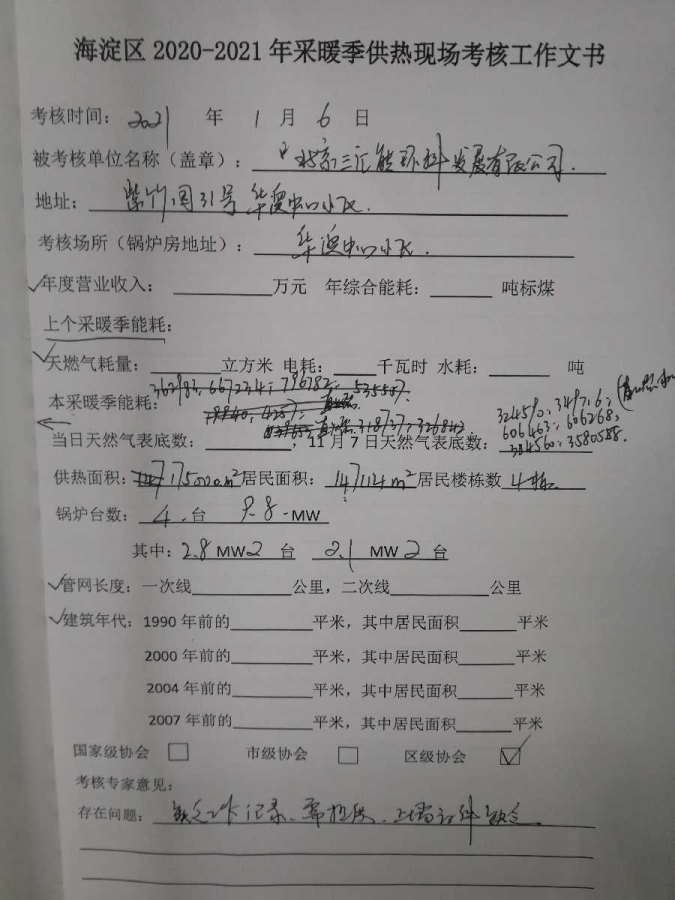 海淀区 2020-2021 年采暖季供热现场考核工作文书
考核时间： 2021 年 1 月 6 日
被考核单位名称（盖章）： 北京三汇能环科发展有限公司.
地址： 紫竹园31号华澳中心小区.
考核场所（锅炉房地址）： 华澳中心小区.
√年度营业收入： ________万元 年综合能耗：______ 吨标煤
上个采暖季能耗：
√天燃气耗量：______立方米 电耗：____千瓦时 水耗：____ 吨
362983; 667234; 796782; 535507.
本采暖季能耗： 324590; 349716;
318737; 326843 606463; 606268;
当日天然气表底数：________，11 月 7 日天然气表底数： 3580558.
供热面积： 175000m² 居民面积： 147114m² 居民楼栋数 4栋.
锅炉台数： 4.台 9.8-MW
其中：2.8 MW 2 台 2.1 MW 2 台
√管网长度：一次线________公里，二次线________公里
√建筑年代：1990 年前的______平米，其中居民面积____平米
2000 年前的______平米，其中居民面积____平米
2004 年前的______平米，其中居民面积____平米
2007 年前的______平米，其中居民面积____平米
国家级协会 □ 市级协会 □ 区级协会 ☑
考核专家意见：
存在问题： 缺乏工作记录、需